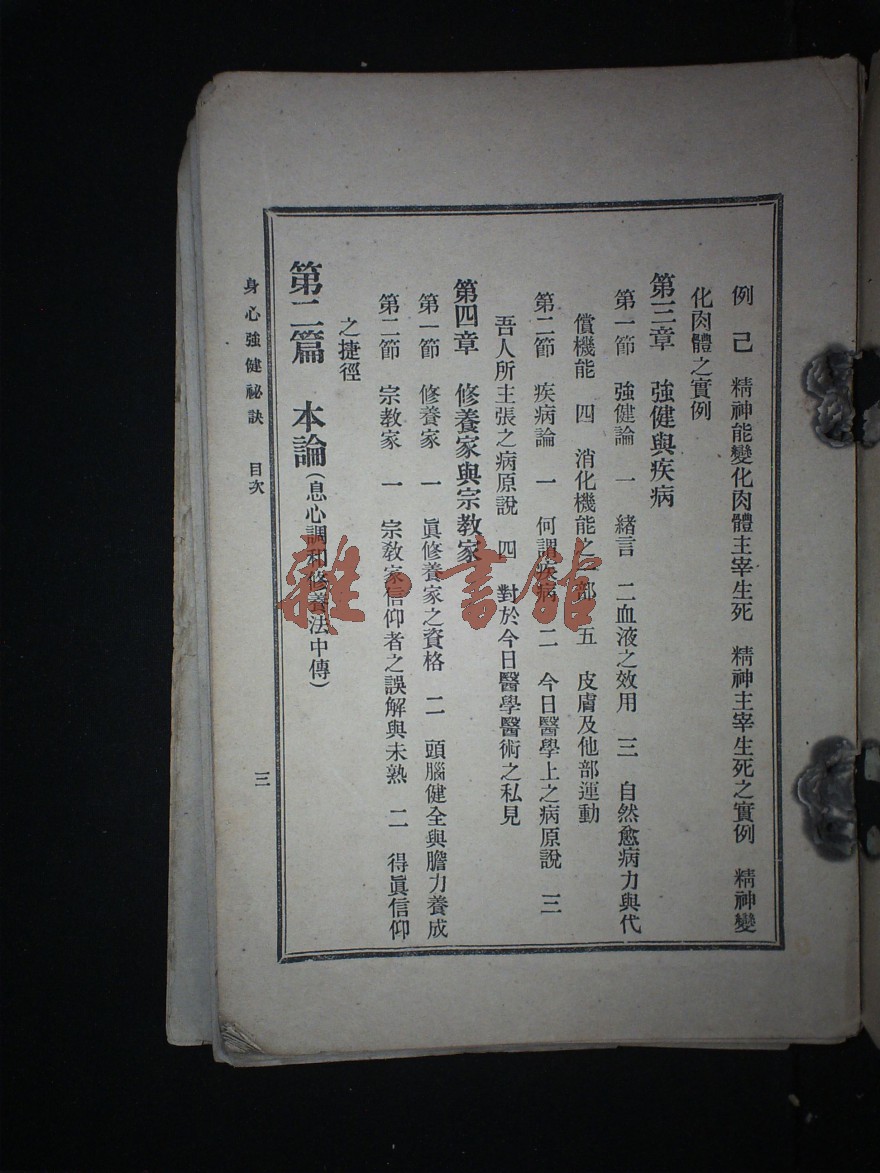 例　己　精神能變化肉體主宰生死　精神主宰生死之實例　精神變
化肉體之實例
第三章　強健與疾病
第一節　強健論　一　緒言　二血液之效用　三　自然愈病力與代
償機能　四　消化機能之一部　五　皮膚及他部運動
第二節　疾病論　一　何謂疾病　二　今日醫學上之病原說　三
吾人所主張之病原說　四　對於今日醫學醫術之私見
第四章　修養家與宗教家
第一節　修養家　一　眞修養家之資格　二　頭腦健全與膽力養成
第二節　宗教家　一　宗教家信仰者之誤解與未熟　二　得眞信仰
之捷徑
第二篇　本論（息心調和修養法中傳）
身心強健祕訣　目次
三
雜·書館